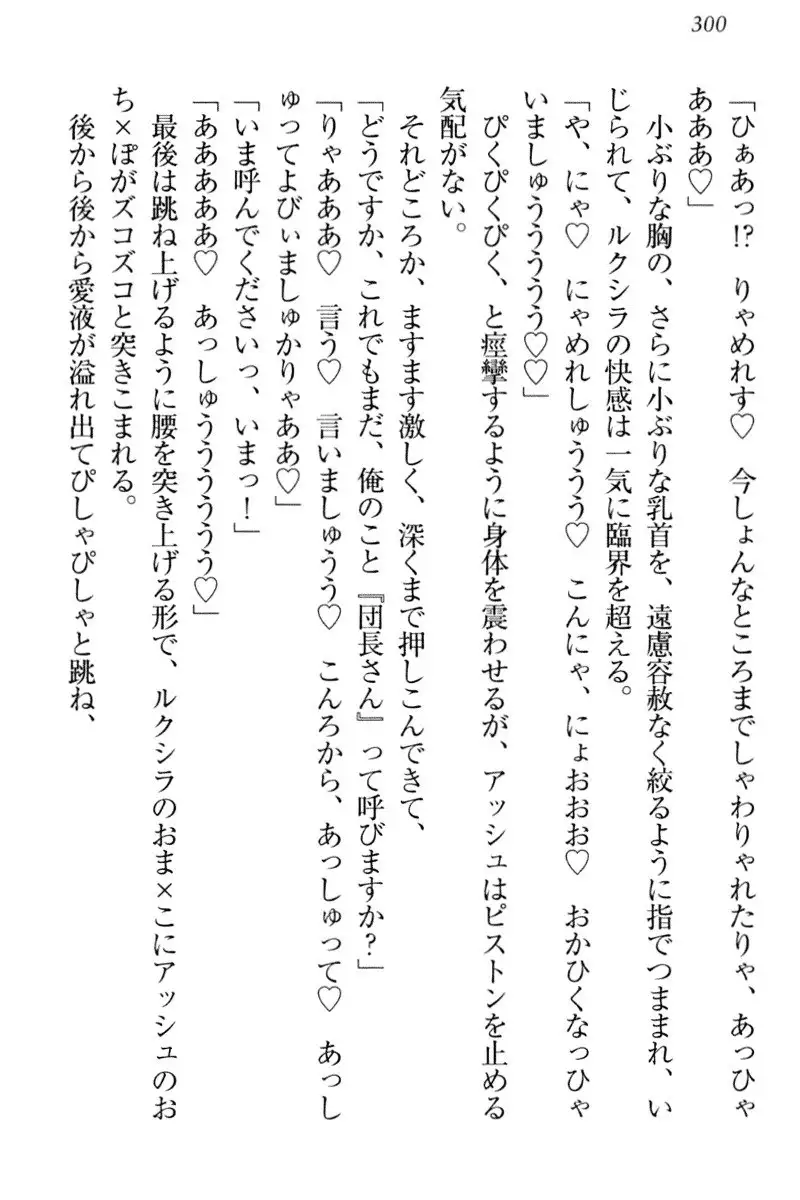 300
「ひぁあっ!?　りゃめれす♡　今しょんなところまでしゃわりゃれたりゃ、あっひゃ
あああ♡」
　小ぶりな胸の、さらに小ぶりな乳首を、遠慮容赦なく絞るように指でつままれ、い
じられて、ルクシラの快感は一気に臨界を超える。
「や、にゃ♡　にゃめれしゅううう♡　こんにゃ、にょおおお♡　おかひくなっひゃ
いましゅううううう♡♡」
　ぴくぴくぴく、と痙攣するように身体を震わせるが、アッシュはピストンを止める
気配がない。
　それどころか、ますます激しく、深くまで押しこんできて、
「どうですか、これでもまだ、俺のこと『団長さん』って呼びますか？」
「りゃあああ♡　言う♡　言いましゅうう♡　こんろから、あっしゅって♡　あっし
ゅってよびぃましゅかりゃああ♡」
「いま呼んでくださいっ、いまっ！」
「ああああああ♡　あっしゅうううううう♡」
　最後は跳ね上げるように腰を突き上げる形で、ルクシラのおま×こにアッシュのお
ち×ぽがズコズコと突きこまれる。
　後から後から愛液が溢れ出てぴしゃぴしゃと跳ね、